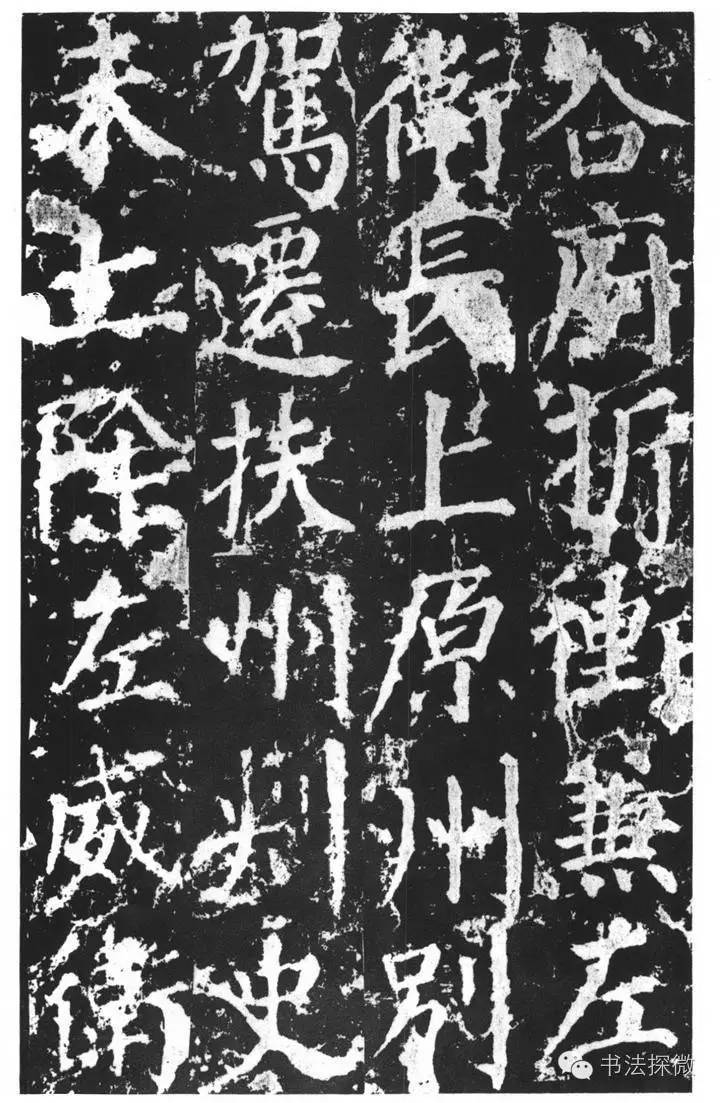 谷府折衝兼左
衛長上原州別
駕遷扶州刺史
未上除左威衛
书法探微